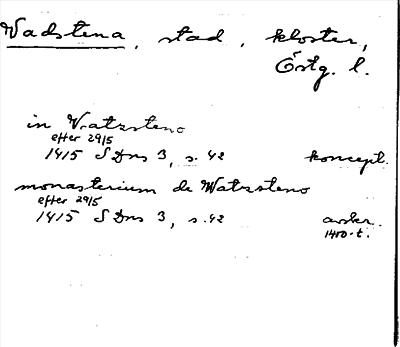 Vadstena, stad, kloster,
Östg. l.
in Watzsteno
efter 29/5
1415 SDns 3, s. 42 koncept.
monasterium de Watzsteno
efter 29/5
1415 SDns 3, s. 42 avskr.
1400-t.